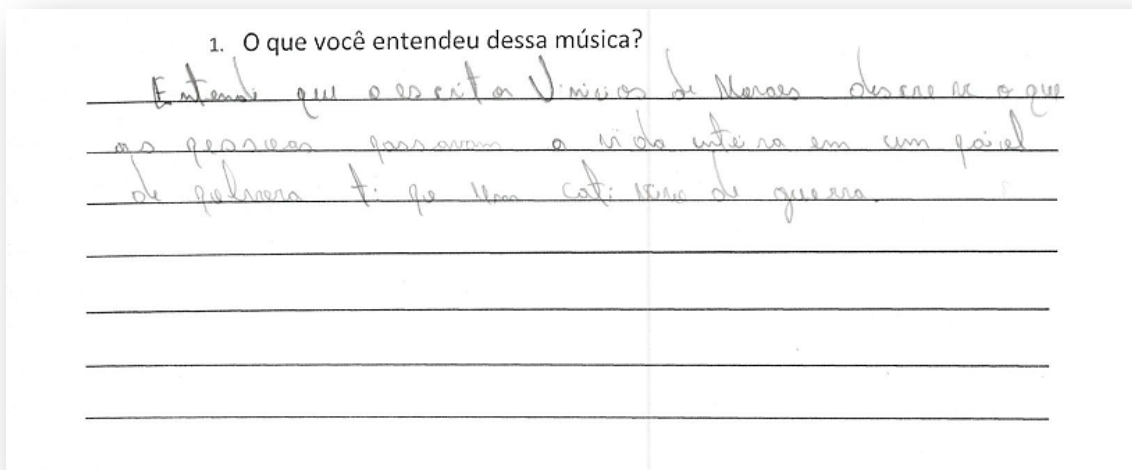 1. O que você entendeu dessa música?
Entendi que o escritor Vinicios de Moraes descreve o que
as pessoas passavam a vida inteira em um paiol
de polvora tipo um cativeiro de guerra.